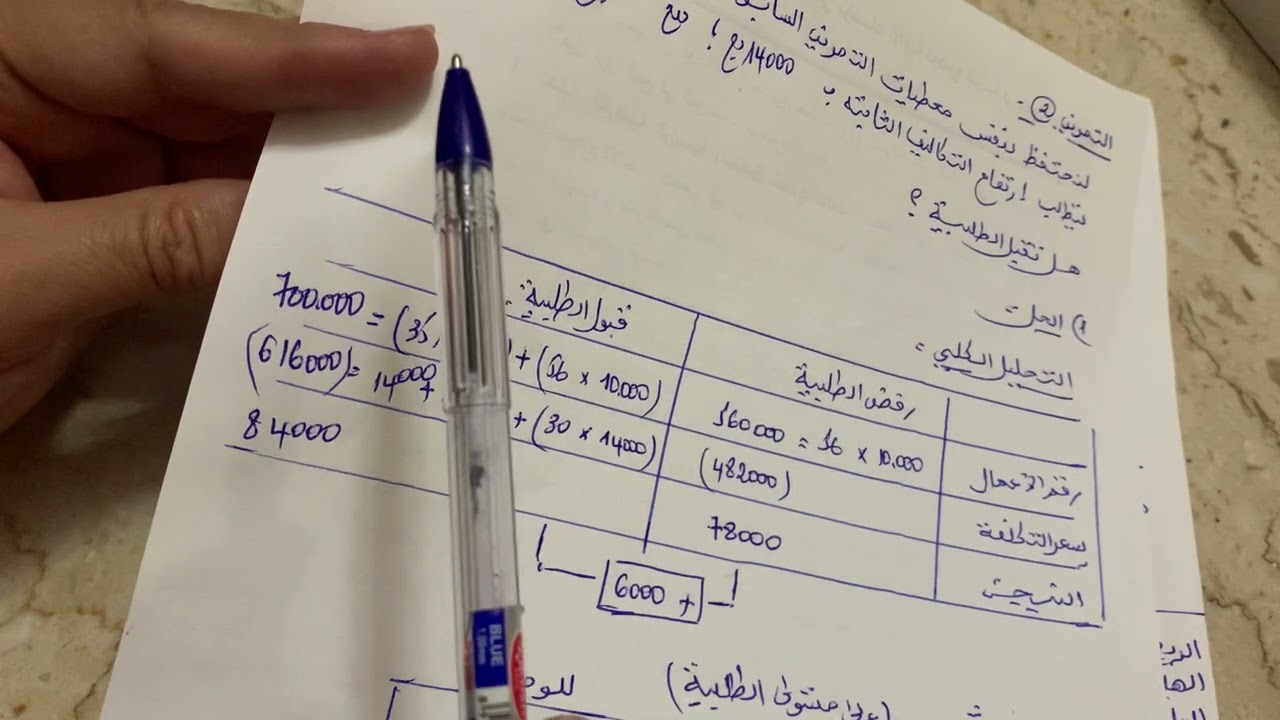 التمرين ② :
لنحتفظ بنفس معطيات التمرين السابق
يتطلب إرتفاع التكاليف الثابتة ب 14000 دج ؛ مع
هل نقبل الطلبية ؟
1) الحل
التحليل الكلي :
رفض الطلبية
قبول الطلبية :
رقم الأعمال
560000 = 56 × 10.000
700.000 = (35,
+ (56 × 10.000)
سعر التكلفة
(482000)
(616000) = 14000 +
+ (30 × 14000)
النتيجة
78000
84000
6000 +
(على مستوى الطلبية)
BLUE